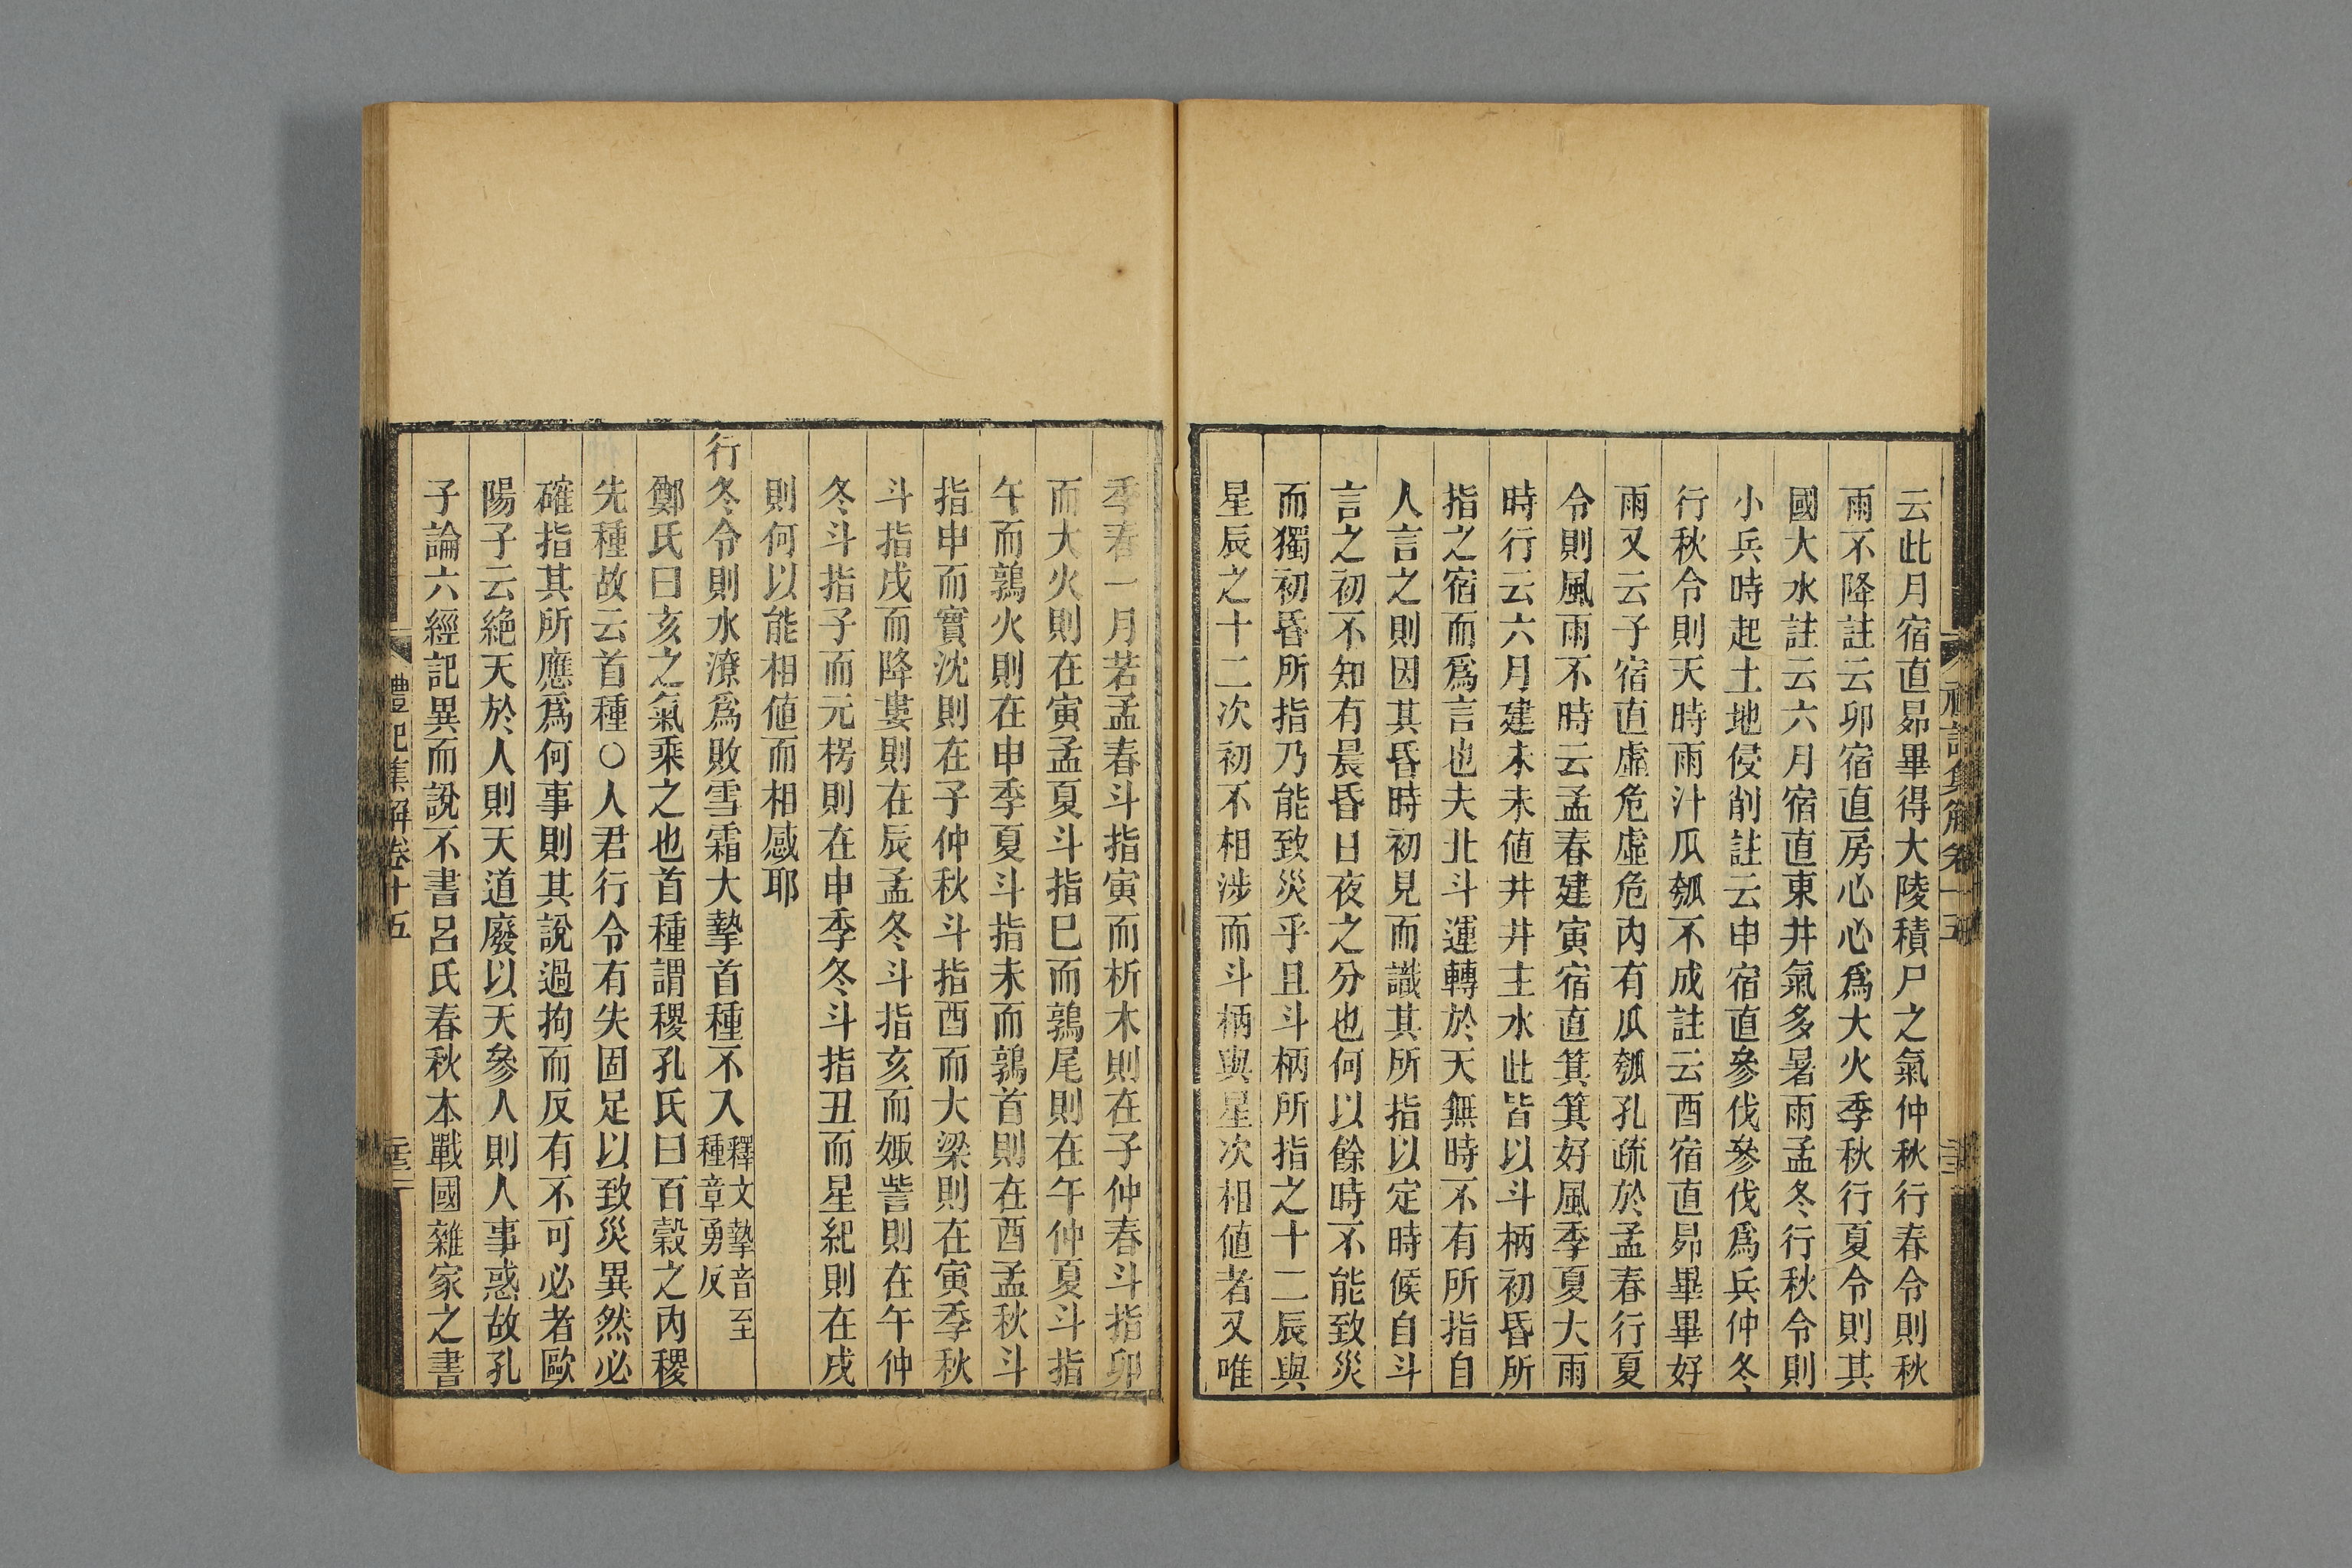 云此月宿直昴畢得大陵積尸之氣仲秋行春令則秋
雨不降註云卯宿直房心心爲大火季秋行夏令則其
國大水註云六月宿直東井氣多暑雨孟冬行秋令則
小兵時起土地侵削註云申宿直參伐參伐爲兵仲冬
行秋令則天時雨汁瓜瓠不成註云酉宿直昴畢畢好
雨又云子宿直虛危虛危內有瓜瓠孔疏於孟春行夏
令則風雨不時云孟春建寅宿直箕箕好風季夏大雨
時行云六月建未未値井井主水此皆以斗柄初昏所
指之宿而爲言也夫北斗運轉於天無時不有所指自
人言之則因其昏時初見而識其所指以定時候自斗
言之初不知有晨昏日夜之分也何以餘時不能致災
而獨初昏所指乃能致災乎且斗柄所指之十二辰與
星辰之十二次初不相涉而斗柄與星次相値者又唯
季春一月若孟春斗指寅而析木則在子仲春斗指卯
而大火則在寅孟夏斗指巳而鶉尾則在午仲夏斗指
午而鶉火則在申季夏斗指未而鶉首則在酉孟秋斗
指申而實沈則在子仲秋斗指酉而大梁則在寅季秋
斗指戌而降婁則在辰孟冬斗指亥而娵訾則在午仲
冬斗指子而元枵則在申季冬斗指丑而星紀則在戌
則何以能相値而相感耶
行冬令則水潦爲敗雪霜大摯首種不入釋文摯音至
種章勇反
鄭氏曰亥之氣乘之也首種謂稷孔氏曰百穀之內稷
先種故云首種○人君行令有失固足以致災異然必
確指其所應爲何事則其說過拘而反有不可必者歐
陽子云絶天於人則天道廢以天參人則人事惑故孔
子論六經記異而說不書呂氏春秋本戰國雜家之書
禮記集解卷十五